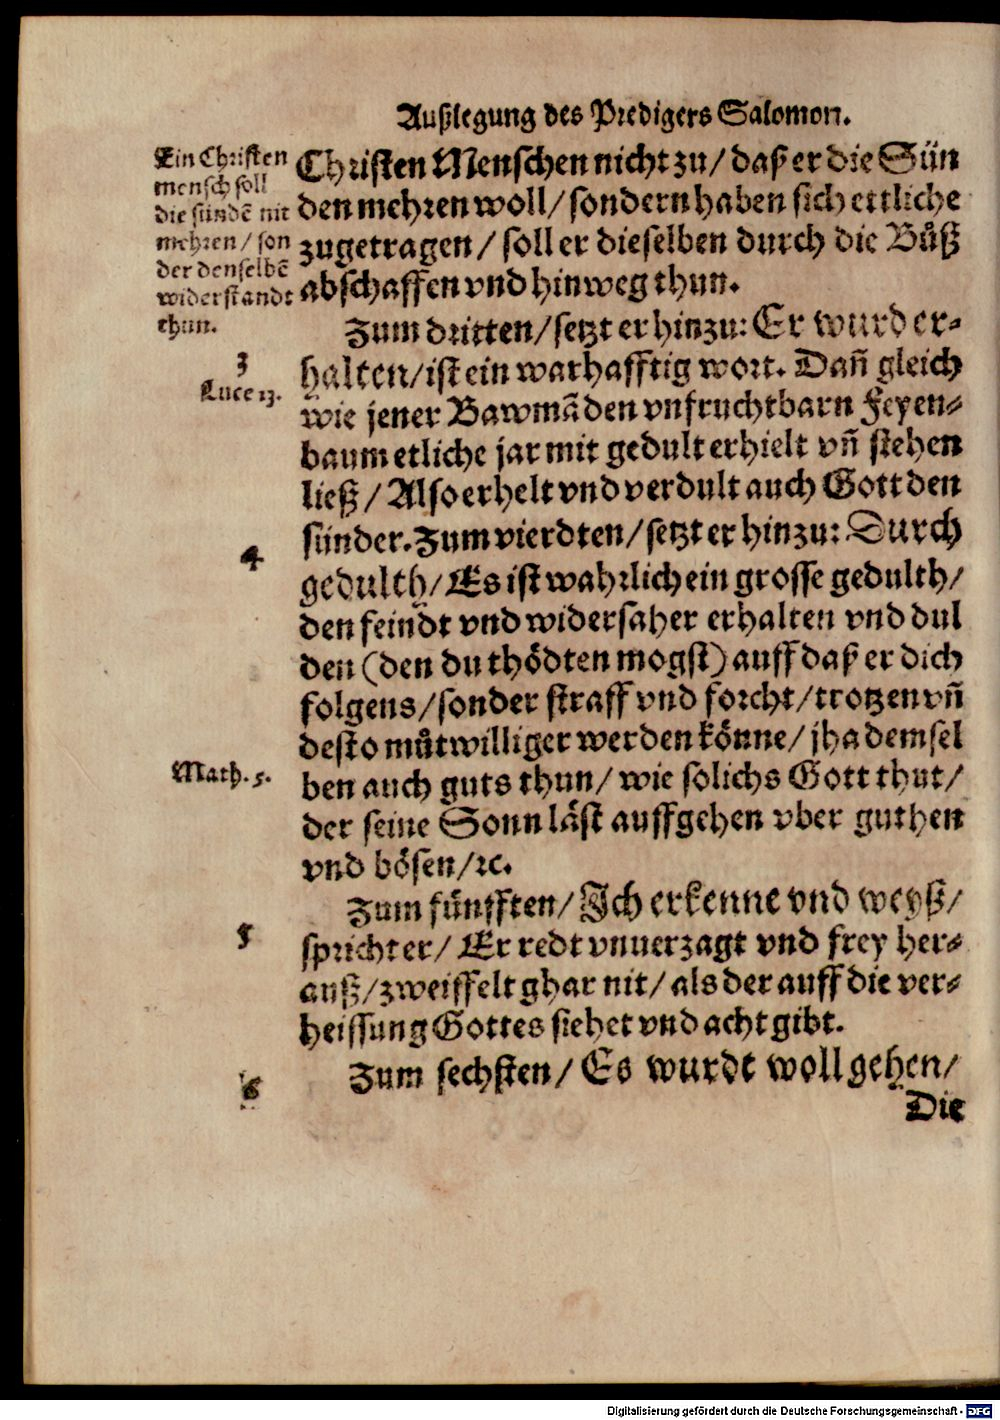 Außlegung des Predigers Salomon.
Ein Christen
mensch soll
die sündẽ nit
mehren / son
der denselbẽ
widerstandt
thun.
Christen Menschen nicht zu / daß er die Sün
den mehren woll / sondern haben sich ettliche
zugetragen / soll er dieselben durch die Bůß
abschaffen vnd hinweg thun.
3
Luce 13.
Zum dritten / setzt er hinzu: Er wurd er⸗
halten / ist ein warhafftig wort. Dañ gleich
wie jener Bawmã den vnfruchtbarn Feyen⸗
baum etliche jar mit gedult erhielt vñ stehen
ließ / Also erhelt vnd verdult auch Gott den
sünder. Zum vierdten / setzt er hinzu: Durch
4
gedulth / Es ist wahrlich ein grosse gedulth /
den feindt vnd widersaher erhalten vnd dul
den (den du thödten mogst) auff daß er dich
folgens / sonder straff vnd forcht / trotzen vñ
desto můtwilliger werden könne / jha demsel
Math. 5.
ben auch guts thun / wie solichs Gott thut /
der seine Sonn läst auffgehen vber guthen
vnd bösen / ꝛc.
Zum fünfften / Ich erkenne vnd weyß /
5
spricht er / Er redt vnuerzagt vnd frey her⸗
auß / zweiffelt ghar nit / als der auff die ver⸗
heissung Gottes siehet vnd acht gibt.
6
Zum sechsten / Es wurdt woll gehen /
Die
Digitalisierung gefördert durch die Deutsche Forschungsgemeinschaft - DFG